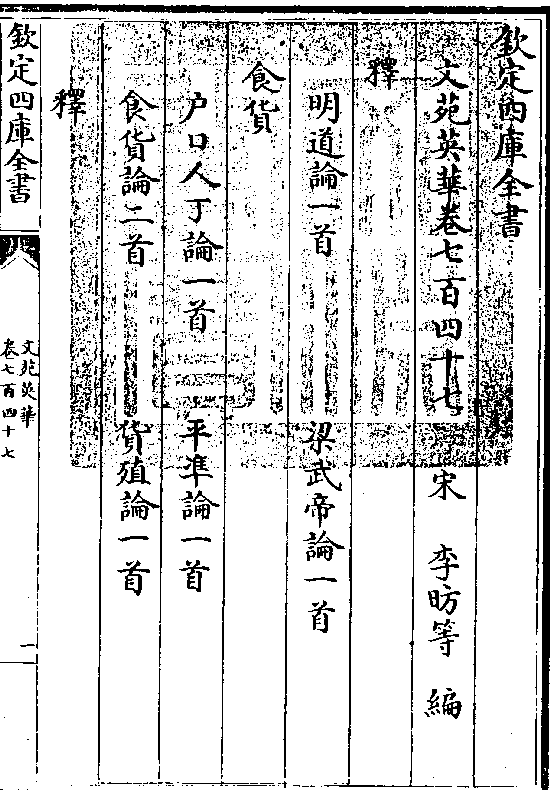 欽定四庫全書
文苑英華卷七百四十七　宋　李昉等　編
釋
明道論一首　梁武帝論一首
食貨
户口人丁論一首　平準論一首
食貨論二首　貨殖論一首
釋
欽定四庫全書
文苑英華
卷七百四十七
一